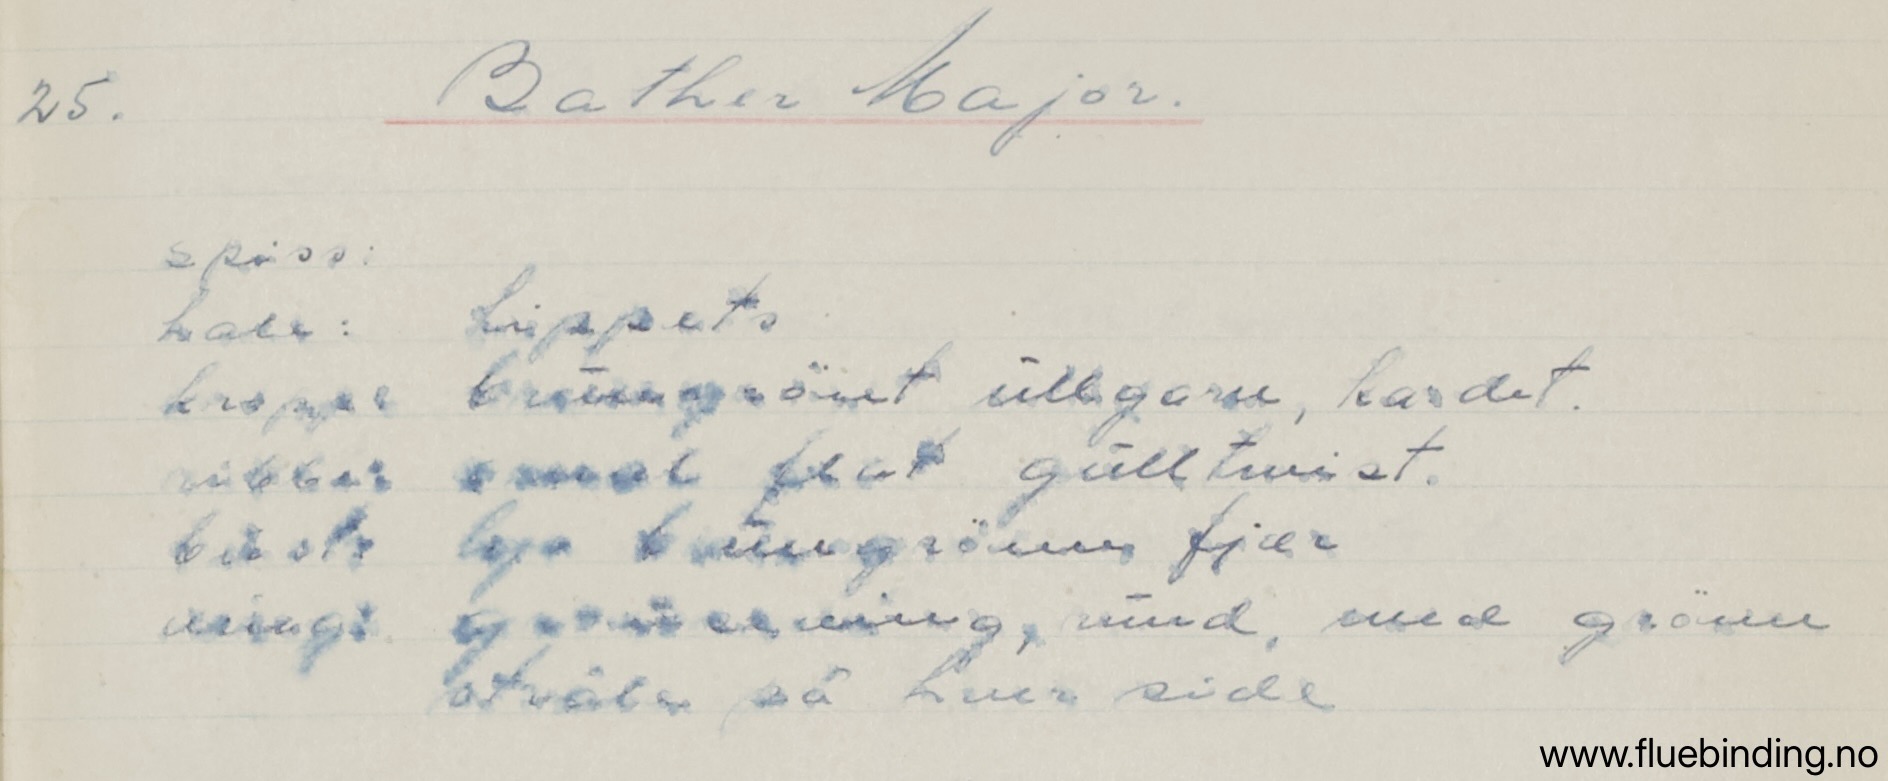 25. Bather Major.
spiss:
hale: tippets
kropp: brüngrönt üllgarn, kardet.
ribber smal flat gülltwist.
büst: lys brüngrönn fjær
ving: grå ving, ründ, med grönn
stråle på hver side
www.fluebinding.no